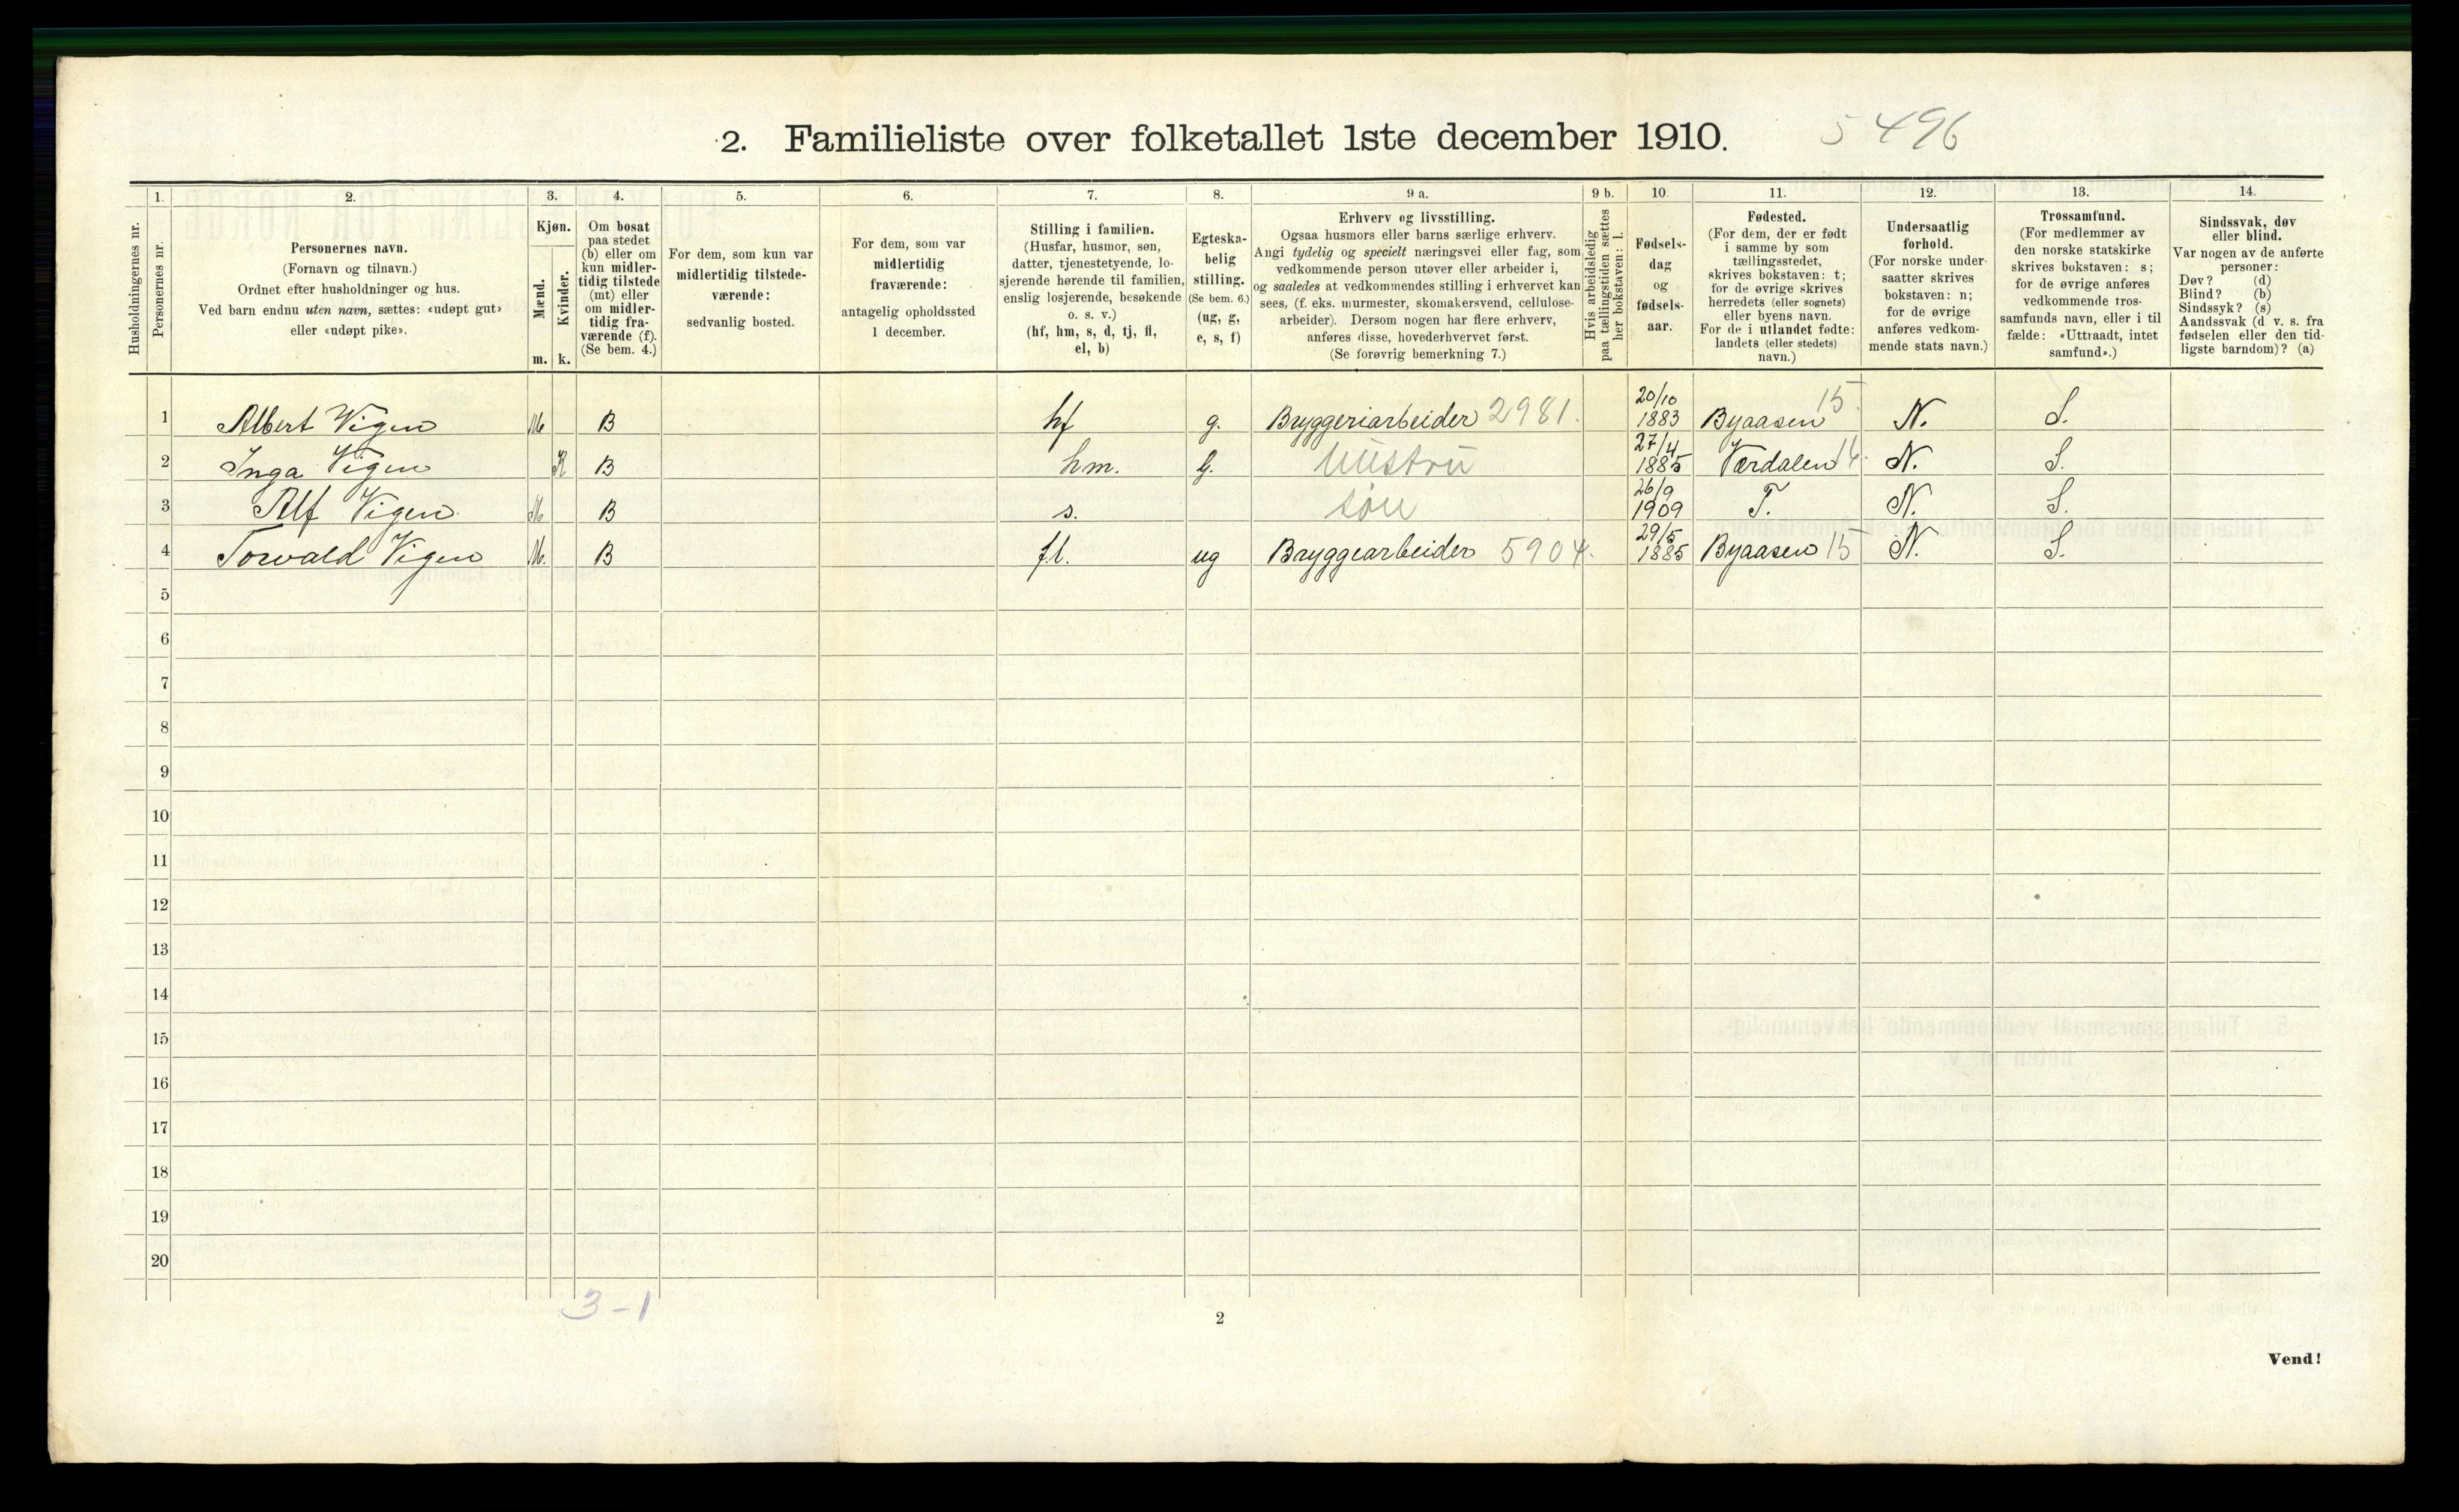 2. Familieliste over folketallet 1ste december 1910. 5496
Husholdningernes nr.
1.
Personernes nr.
2.
Personernes navn.
(Fornavn og tilnavn.)
Ordnet efter husholdninger og hus.
Ved barn endnu uten navn, sættes: «udøpt gut»
eller «udøpt pike».
3.
Kjøn.
Mænd.
Kvinder.
m. k.
4.
Om bosat
paa stedet
(b) eller om
kun midler-
tidig tilstede
(mt) eller
om midler-
tidig fra-
værende (f).
(Se bem. 4.)
5.
For dem, som kun var
midlertidig tilstede-
værende:
sedvanlig bosted.
6.
For dem, som var
midlertidig
fraværende:
antagelig opholdssted
1 december.
7.
Stilling i familien.
(Husfar, husmor, søn,
datter, tjenestetyende, lo-
sjerende hørende til familien,
enslig losjerende, besøkende
o. s. v.)
(hf, hm, s, d, tj, fl,
el, b)
8.
Egteska-
belig
stilling.
(Se bem. 6.)
(ug, g,
e, s, f)
9 a.
Erhverv og livsstilling.
Ogsaa husmors eller barns særlige erhverv.
Angi tydelig og specielt næringsvei eller fag, som
vedkommende person utøver eller arbeider i,
og saaledes at vedkommendes stilling i erhvervet kan
sees, (f. eks. murmester, skomakersvend, cellulose-
arbeider). Dersom nogen har flere erhverv,
anføres disse, hovederhvervet først.
(Se forøvrig bemerkning 7.)
9 b.
Hvis arbeidsledig
paa tællingstiden sættes
her bokstaven: l.
10.
Fødsels-
dag
og
fødsels-
aar.
11.
Fødested.
(For dem, der er født
i samme by som
tællingsstedet,
skrives bokstaven: t;
for de øvrige skrives
herredets (eller sognets)
eller byens navn.
For de i utlandet fødte:
landets (eller stedets)
navn.)
12.
Undersaatlig
forhold.
(For norske under-
saatter skrives
bokstaven: n;
for de øvrige
anføres vedkom-
mende stats navn.)
13.
Trossamfund.
(For medlemmer av
den norske statskirke
skrives bokstaven: s;
for de øvrige anføres
vedkommende tros-
samfunds navn, eller i til
fælde: «Uttraadt, intet
samfund».)
14.
Sindssvak, døv
eller blind.
Var nogen av de anførte
personer:
Døv? (d)
Blind? (b)
Sindssyk? (s)
Aandssvak (d v. s. fra
fødselen eller den tid-
ligste barndom)? (a)
1 Albert Vigen M B hf g. Bryggeriarbeider 2981. 20/10 1883 Byaasen 15 N. S.
2 Inga Vigen K B hm. G. hustru 27/4 1885 Værdalen N. S.
3 Alf Vigen M B s. søn 26/9 1909 T. N. S.
4 Torvald Vigen M. B fl. ug Bryggearbeider 5904. 29/5 1885 Byaasen 15 N. S.
5
6
7
8
9
10
11
12
13
14
15
16
17
18
19
20
3-1
2
Vend!